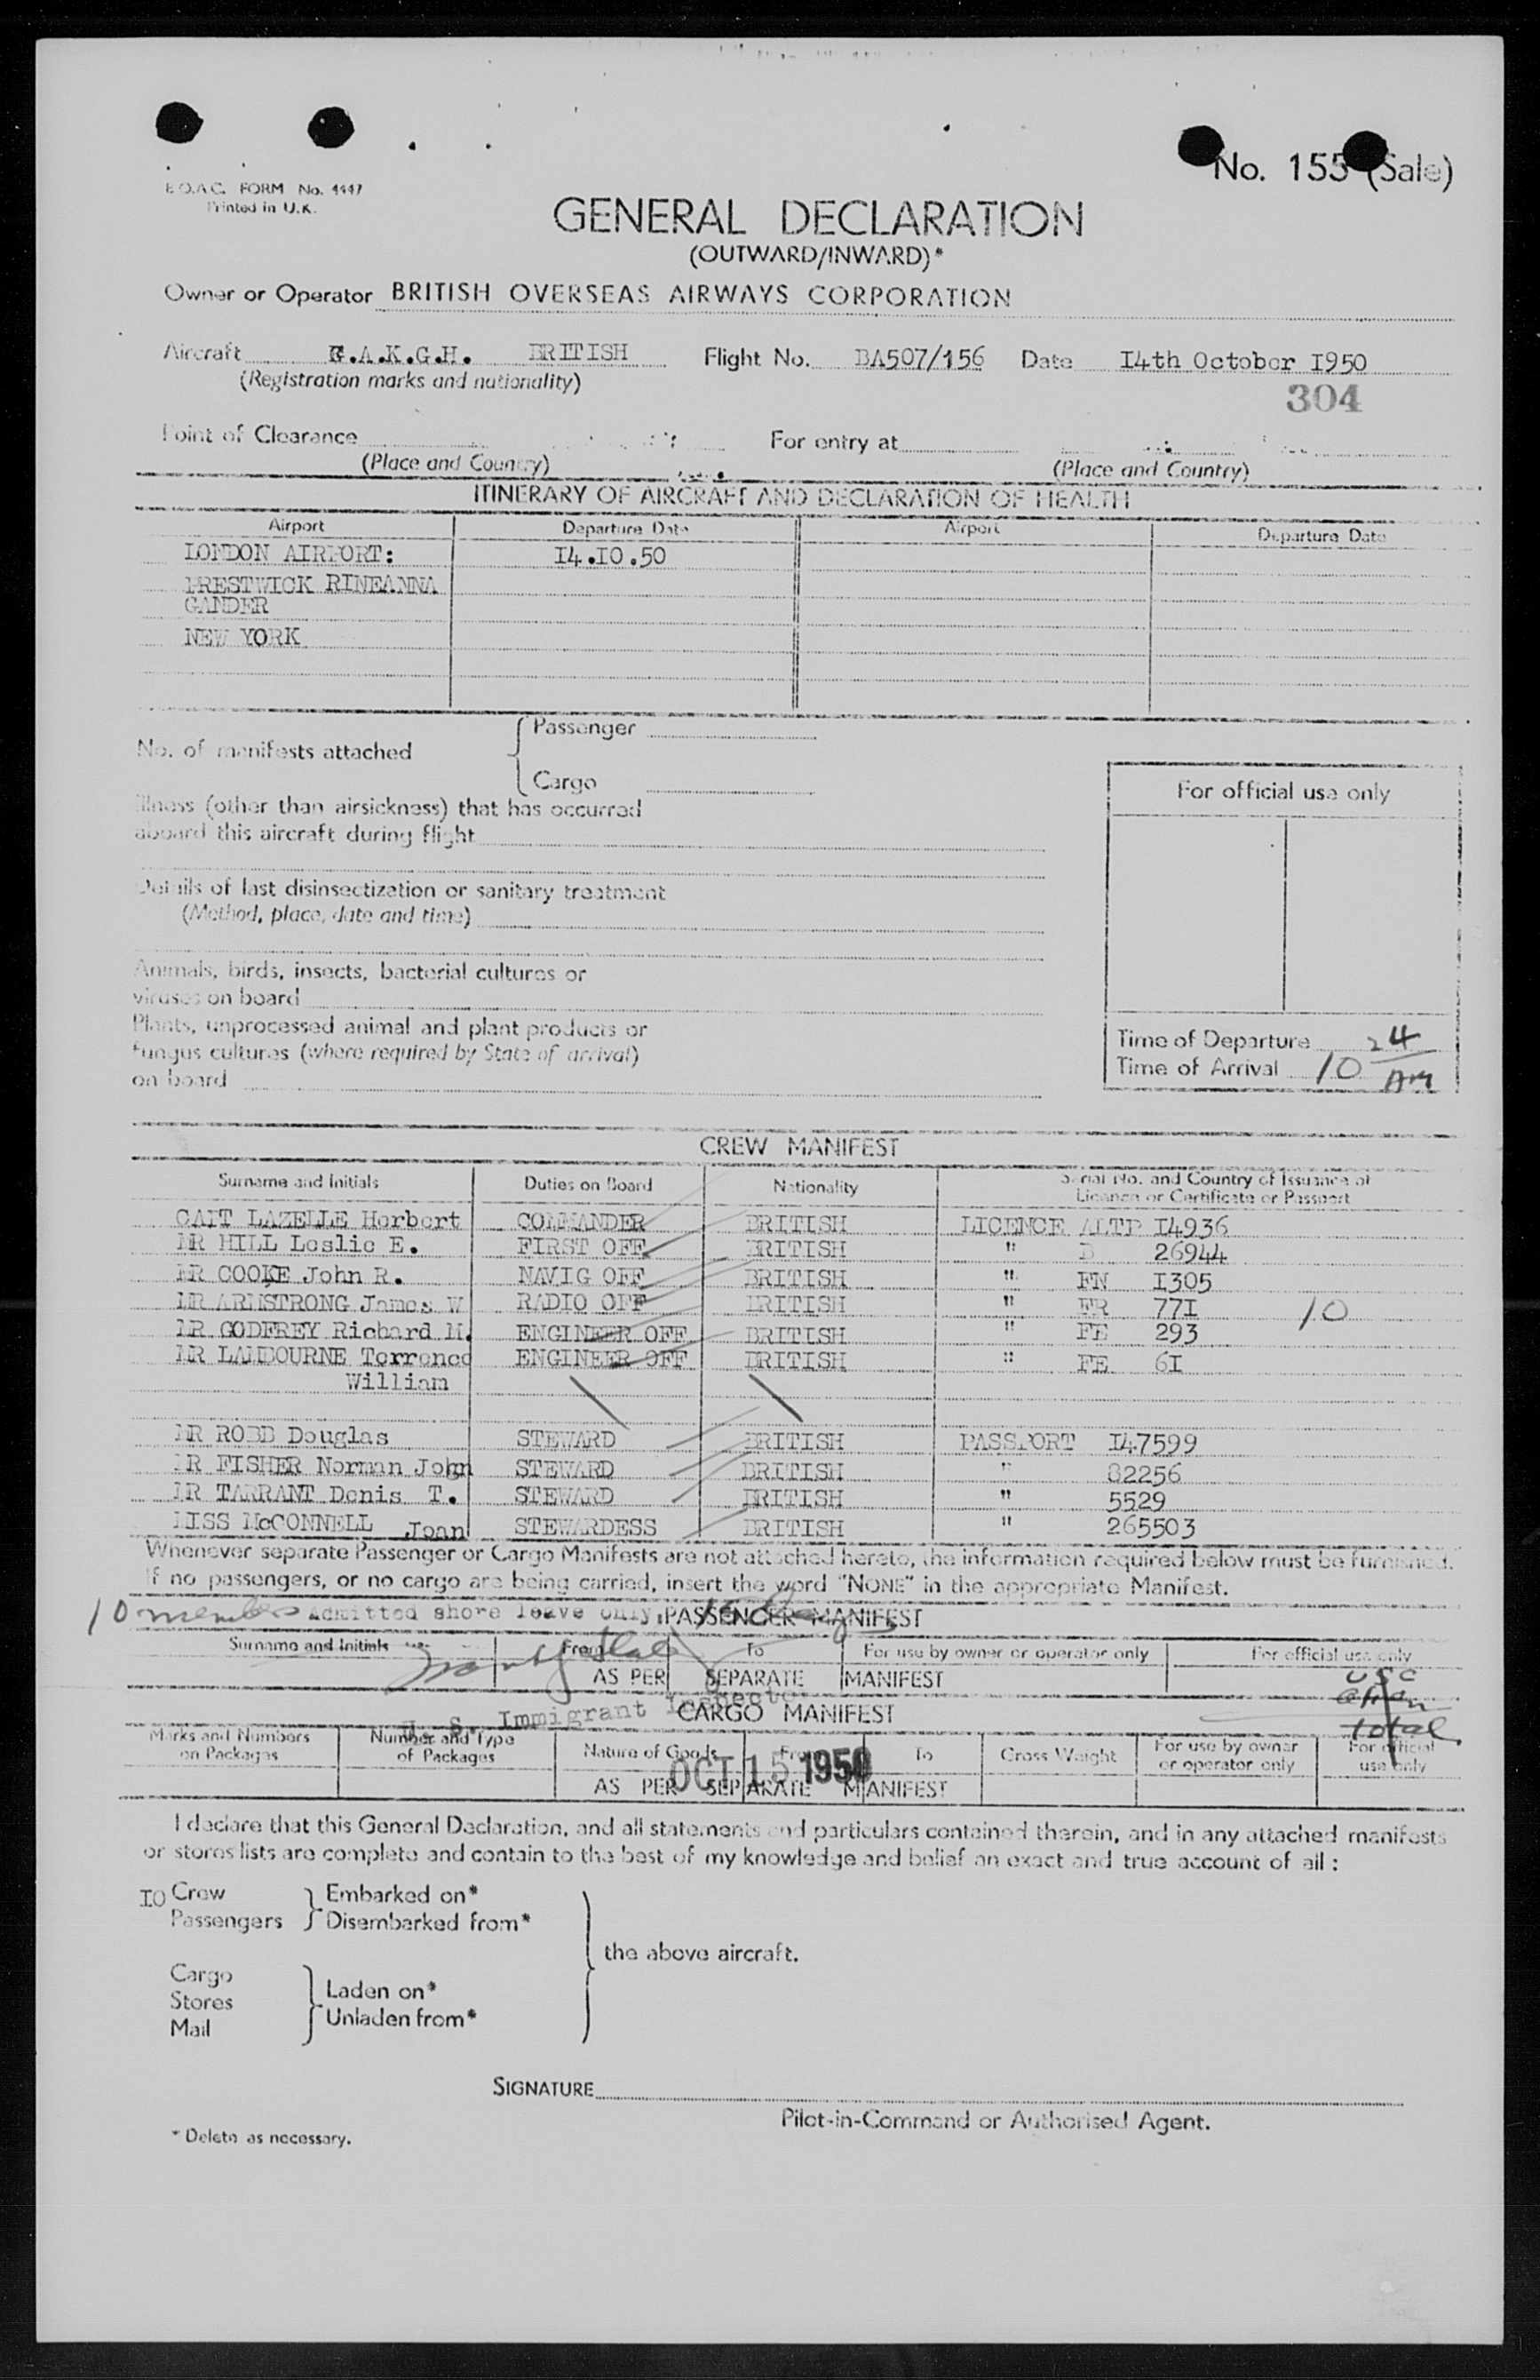 No. 155 (Sale)
B.O.A.C. FORM No. 4447
Printed in U.K.
GENERAL DECLARATION
(OUTWARD/INWARD)*
Owner or Operator BRITISH OVERSEAS AIRWAYS CORPORATION
Aircraft G.A.K.G.H. BRITISH Flight No. BA507/156 Date I4th October I950
(Registration marks and nationality)
304
Point of Clearance For entry at
(Place and Country) (Place and Country)
ITINERARY OF AIRCRAFT AND DECLARATION OF HEALTH
Airport Departure Date Airport Departure Date
LONDON AIRPORT: I4.I0.50
PRESTWICK RINEANNA
GANDER
NEW YORK
No. of manifests attached { Passenger
Cargo
For official use only
Illness (other than airsickness) that has occurred
aboard this aircraft during flight
Details of last disinsectization or sanitary treatment
(Method, place, date and time)
Animals, birds, insects, bacterial cultures or
viruses on board
Plants, unprocessed animal and plant products or
fungus cultures (where required by State of arrival)
on board
Time of Departure
Time of Arrival 10 24 AM
CREW MANIFEST
Surname and Initials Duties on Board Nationality Serial No. and Country of Issuance of
Licence or Certificate or Passport
CAPT LAZELLE Herbert COMMANDER BRITISH LICENCE ALTP I4936
MR HILL Leslie E. FIRST OFF BRITISH " B 26944
MR COOKE John R. NAVIG OFF BRITISH " FN I305
MR ARMSTRONG James W RADIO OFF BRITISH " FR 77I 10
MR GODFREY Richard M. ENGINEER OFF BRITISH " FE 293
MR LAMBOURNE Terrence ENGINEER OFF BRITISH " FE 6I
William
MR ROBB Douglas STEWARD BRITISH PASSPORT I47599
MR FISHER Norman John STEWARD BRITISH " 82256
MR TARRANT Denis T. STEWARD BRITISH " 5529
MISS McCONNELL Joan STEWARDESS BRITISH " 265503
Whenever separate Passenger or Cargo Manifests are not attached hereto, the information required below must be furnished.
If no passengers, or no cargo are being carried, insert the word "NONE" in the appropriate Manifest.
10 members Admitted shore leave only,
PASSENGER MANIFEST
Surname and Initials From To For use by owner or operator only For official use only
AS PER SEPARATE MANIFEST
USC
alien
total
U. S. Immigrant Inspector
CARGO MANIFEST
Marks and Numbers on Packages Number and Type of Packages Nature of Goods From To Gross Weight For use by owner or operator only For official use only
OCT 15 1950
AS PER SEPARATE MANIFEST
I declare that this General Declaration, and all statements and particulars contained therein, and in any attached manifests
or stores lists are complete and contain to the best of my knowledge and belief an exact and true account of all :
I0 Crew } Embarked on*
Passengers } Disembarked from*
the above aircraft.
Cargo
Stores } Laden on*
Mail } Unladen from*
SIGNATURE
Pilot-in-Command or Authorised Agent.
* Delete as necessary.